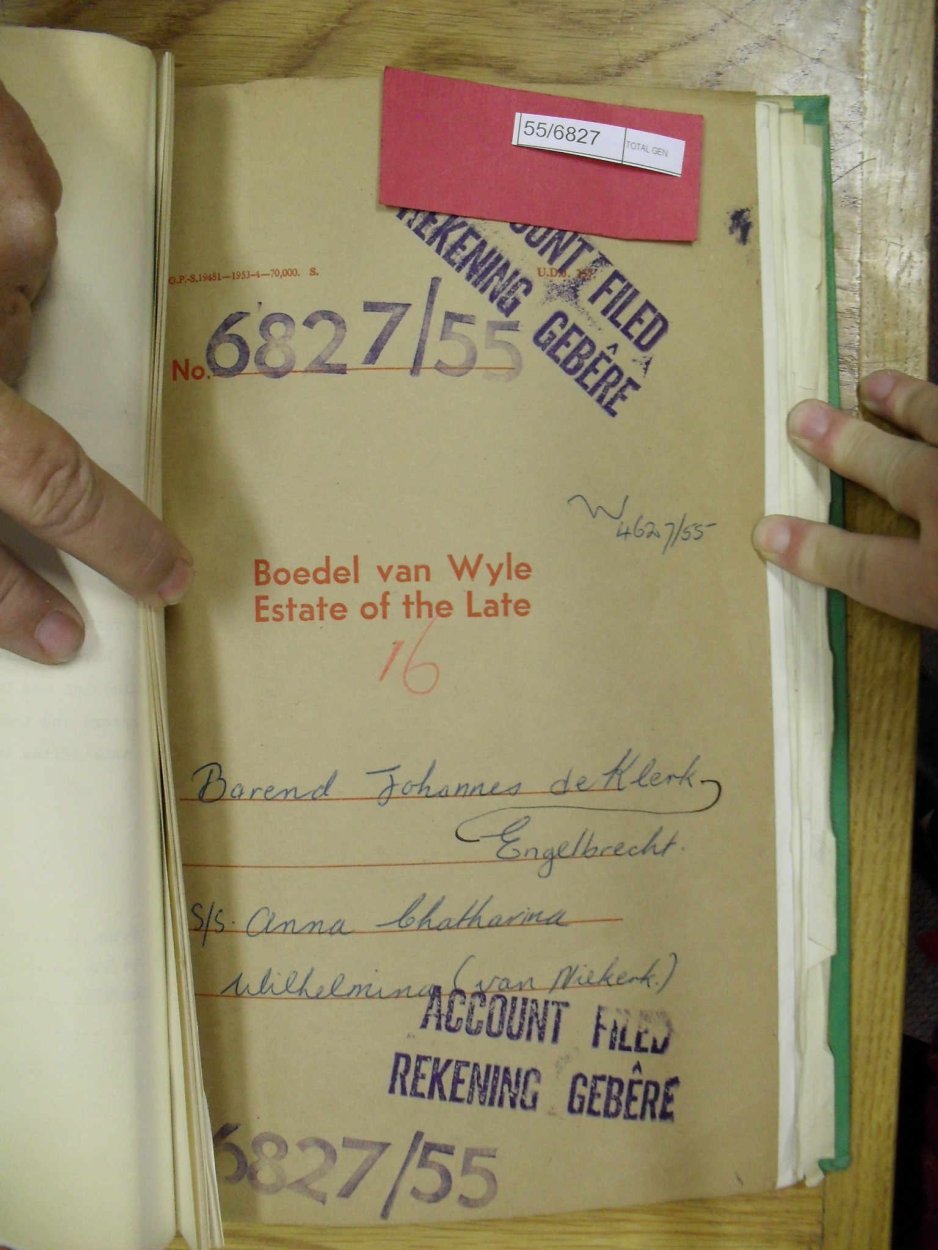 55/6827
TOTAL GEN
ACCOUNT FILED
REKENING GEBÊRE
G.P.-S.19481—1953-4—70,000. S.
U.D.
No. 6827/55
W 4627/55
Boedel van Wyle
Estate of the Late
16
Barend Johannes de Klerk
Engelbrecht.
S/S. Anna Chatharina
Wilhelmina (van Niekerk.)
ACCOUNT FILED
REKENING GEBÊRE
6827/55